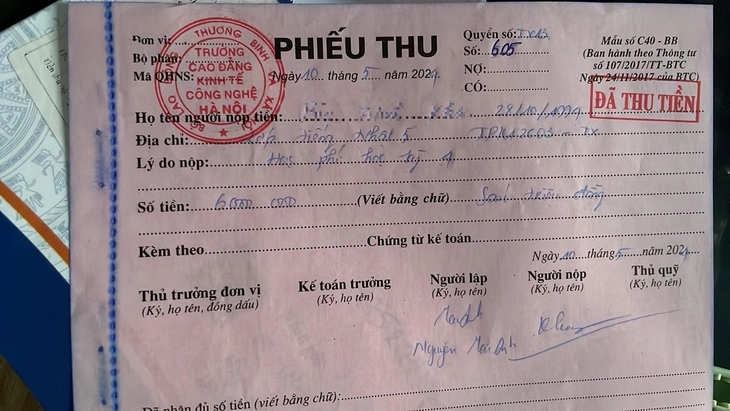 Đơn vị:
Bộ phận:
Mã QHNS:
BỘ LAO ĐỘNG THƯƠNG BINH VÀ XÃ HỘI
TRƯỜNG
CAO ĐẲNG
KINH TẾ
CÔNG NGHỆ
HÀ NỘI
PHIẾU THU
Ngày 10 tháng 5 năm 2024
Quyển số:
Số: 605
NỢ:
CÓ:
Mẫu số C40 - BB
(Ban hành theo Thông tư
số 107/2017/TT-BTC
Ngày 24/11/2017 của BTC)
ĐÃ THU TIỀN
Họ tên người nộp tiền:
Địa chỉ: Tiếng Nhật 5
Lý do nộp: Học phí học kỳ 4
Số tiền: 6.000.000 (Viết bằng chữ) Sáu triệu đồng
Kèm theo Chứng từ kế toán
Ngày 10 tháng 5 năm 2024
Thủ trưởng đơn vị Kế toán trưởng Người lập Người nộp Thủ quỹ
(Ký, họ tên, đóng dấu) (Ký, họ tên) (Ký, họ tên) (Ký, họ tên) (Ký, họ tên)
Nguyễn
Đã nhận đủ số tiền (viết bằng chữ):